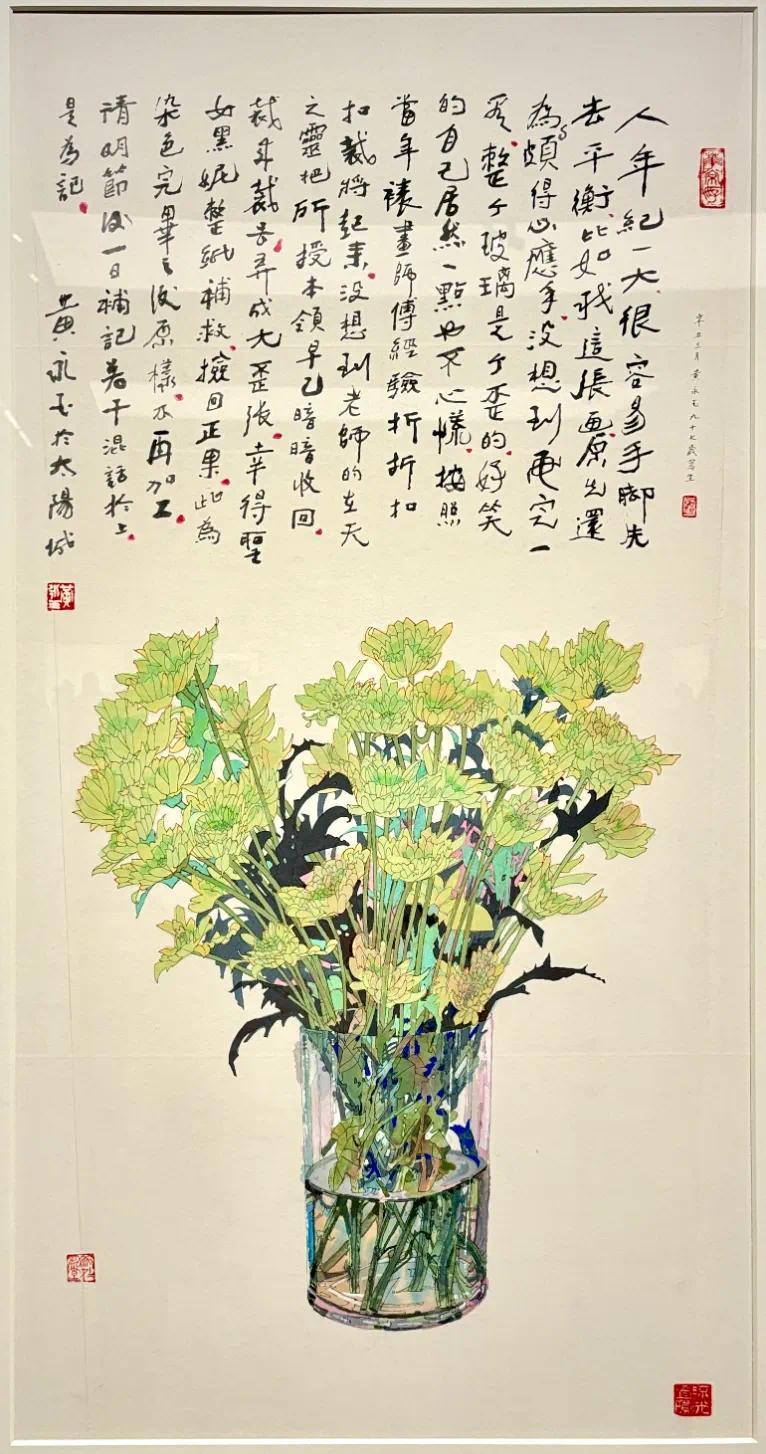 辛丑三月 黄永玉九十七歲寫生
人年紀一大很容易手脚失
去平衡比如我這張画原先還
為頗得心應手没想到画完一
看整个玻璃是个歪的好笑
的自己居然一點也不心慌按照
當年裱畫師傅經驗折折扣
扣裁將起来没想到老師的在天
之靈把所授本領早已暗暗收回
裁来裁去弄成大歪張幸得聖
女黑妮整紙補救撿回正果此為
染色完畢之後原樣不再加工
清明節後一日補記若干混話於上
是為記 黄永玉於太陽城